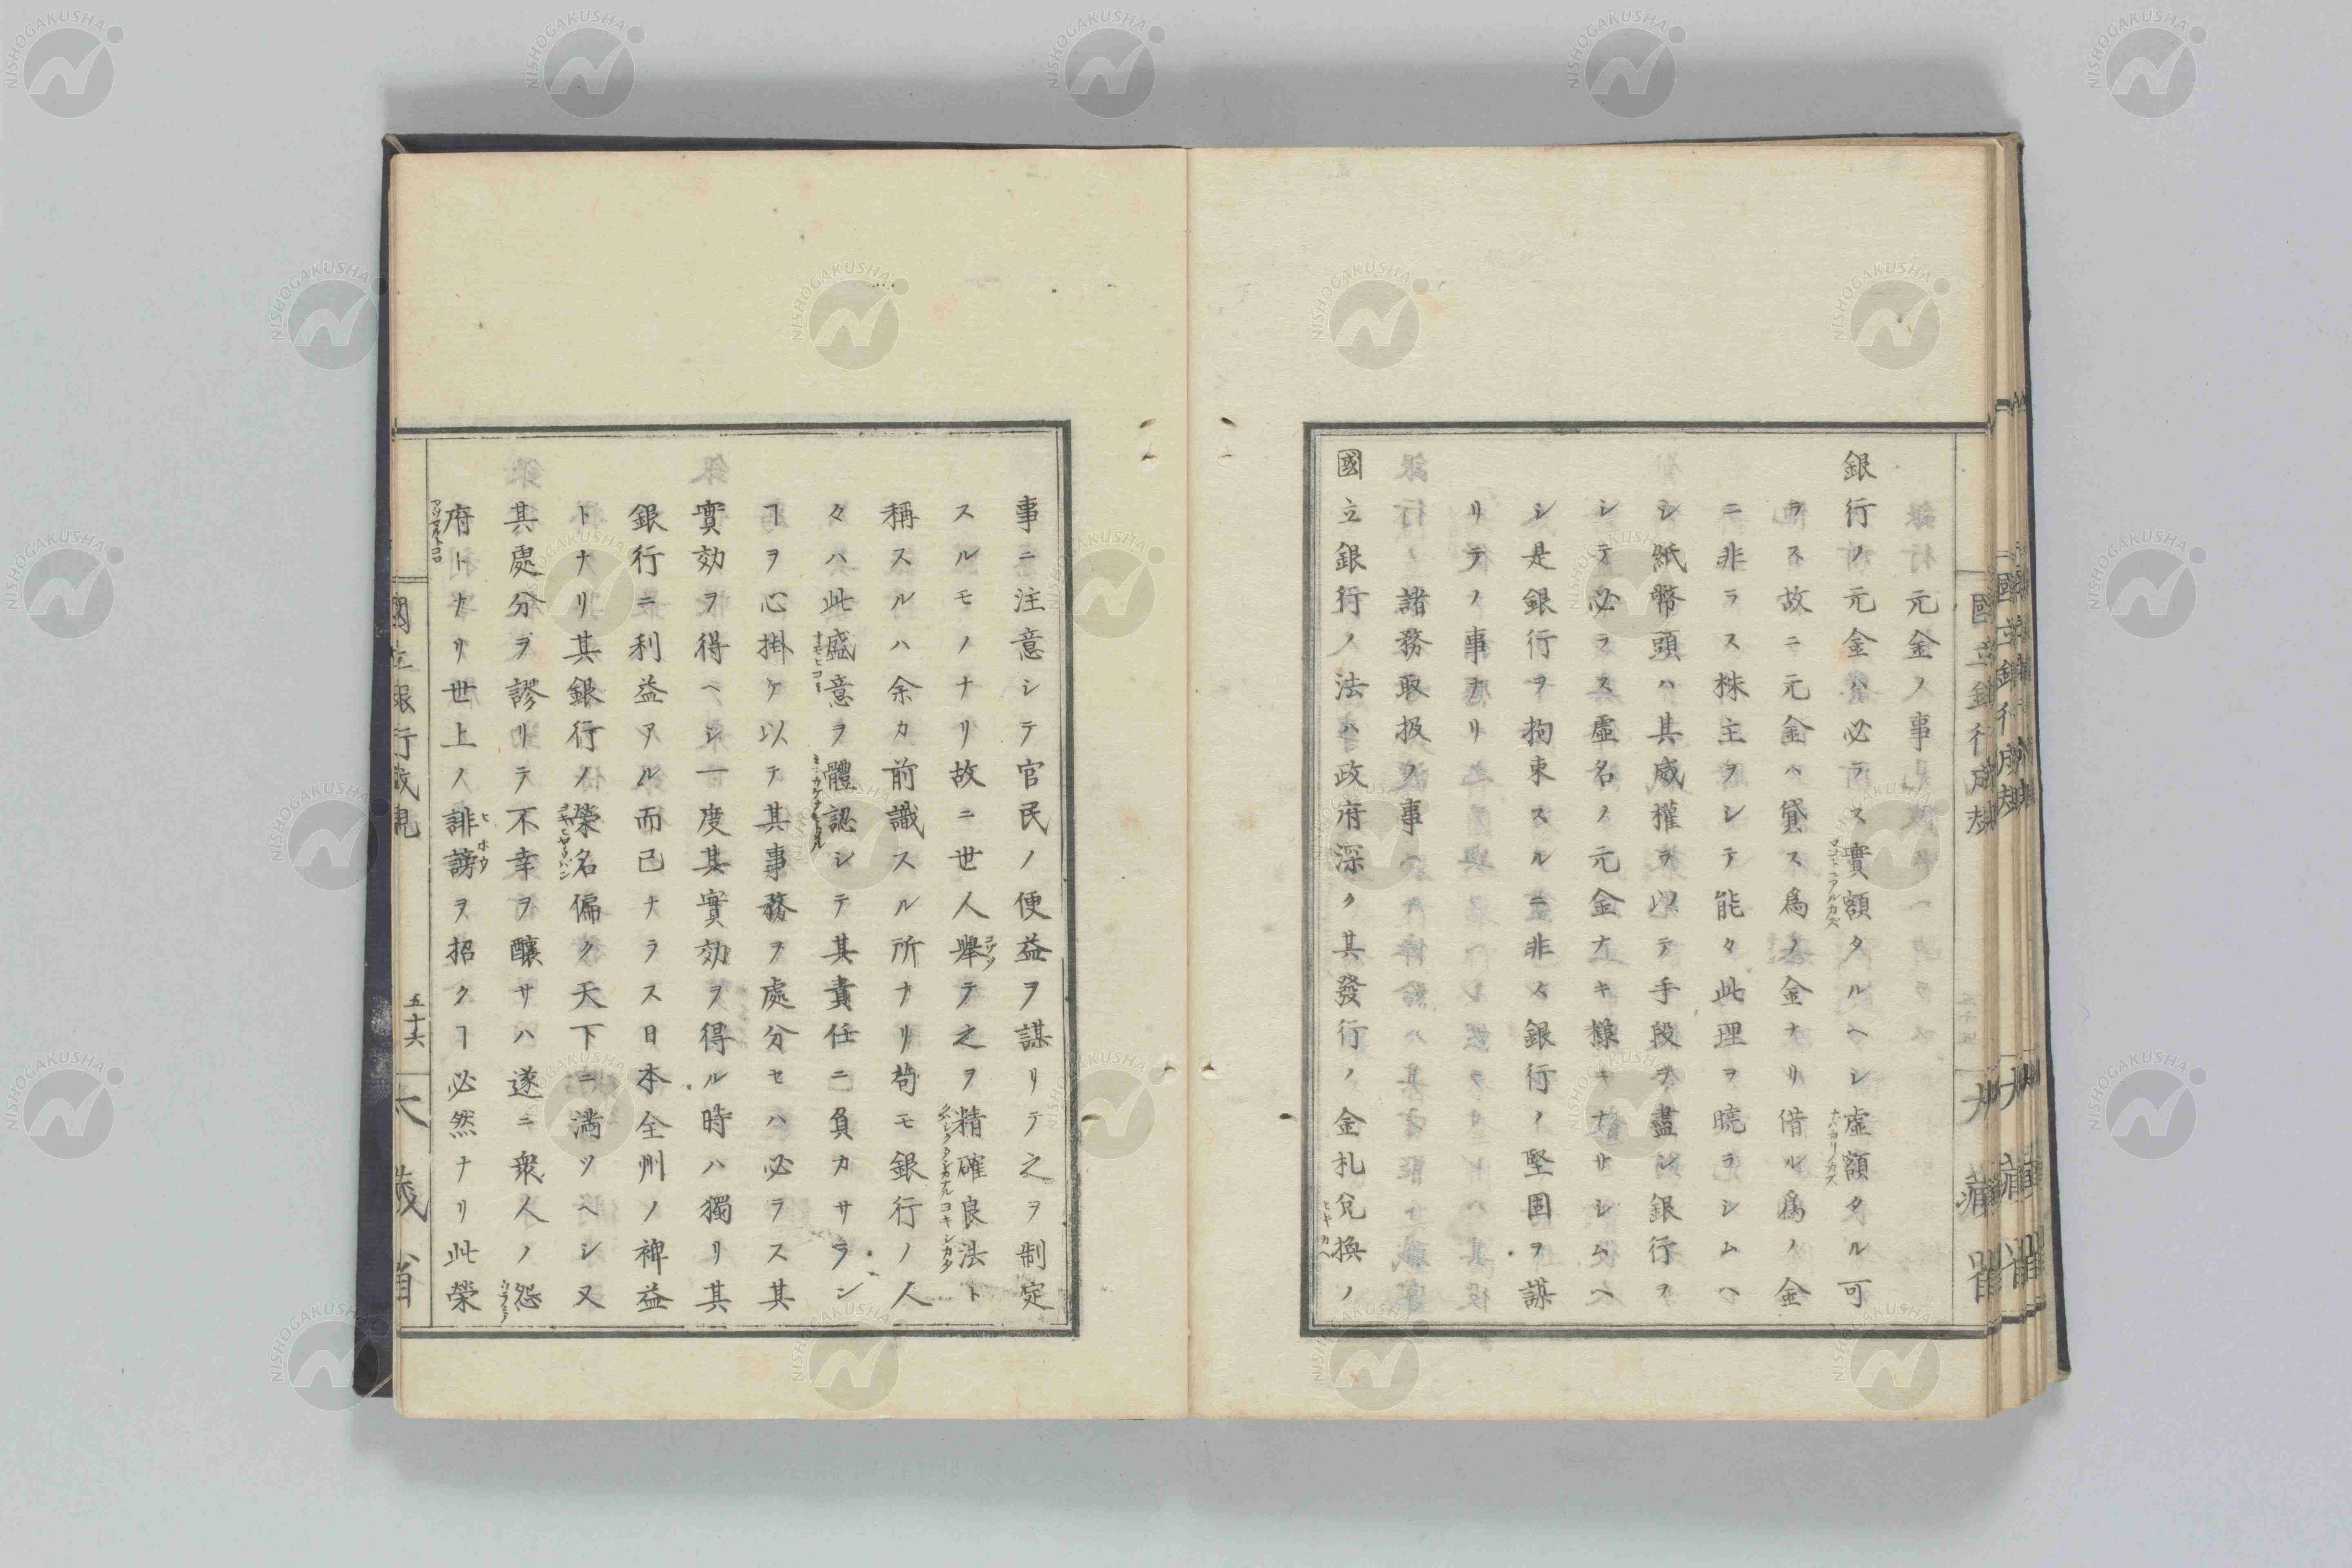 銀行元金ノ事
銀行ノ元金ハ必ラス實額タルヘシ虚額タル可
ラス故ニ元金ハ貸ス爲ノ金ナリ借ル爲ノ金
ニ非ラス株主ヲシテ能々此理ヲ曉ラシムヘ
シ紙幣頭ハ其威權ヲ以テ手段ヲ盡シ銀行ヲ
シテ必ラス虚名ノ元金ナキ樣ニナサシムヘ
シ是銀行ヲ拘束スルニ非ス銀行ノ堅固ヲ謀
リテノ事ナリ
銀行ノ諸務取扱ノ事
國立銀行ノ法ハ政府深ク其發行ノ金札兌換ノ
事ニ注意シテ官民ノ便益ヲ謀リテ之ヲ制定
スルモノナリ故ニ世人擧テ之ヲ精確良法ト
稱スルハ余カ前識スル所ナリ苟モ銀行ノ人
々ハ此盛意ヲ體認シテ其責任ニ負カサラン
ヿヲ心掛ケ以テ其事務ヲ處分セハ必ラス其
實効ヲ得ヘシ一度其實効ヲ得ル時ハ獨リ其
銀行ニ利益アル而已ナラス日本全州ノ裨益
トナリ其銀行ノ榮名偏ク天下ニ満ツヘシ又
其處分ヲ謬リテ不幸ヲ釀サハ遂ニ衆人ノ怨
府トナリ世上ノ誹謗ヲ招クヿ必然ナリ此榮
五十六
NISHOGAKUSHA